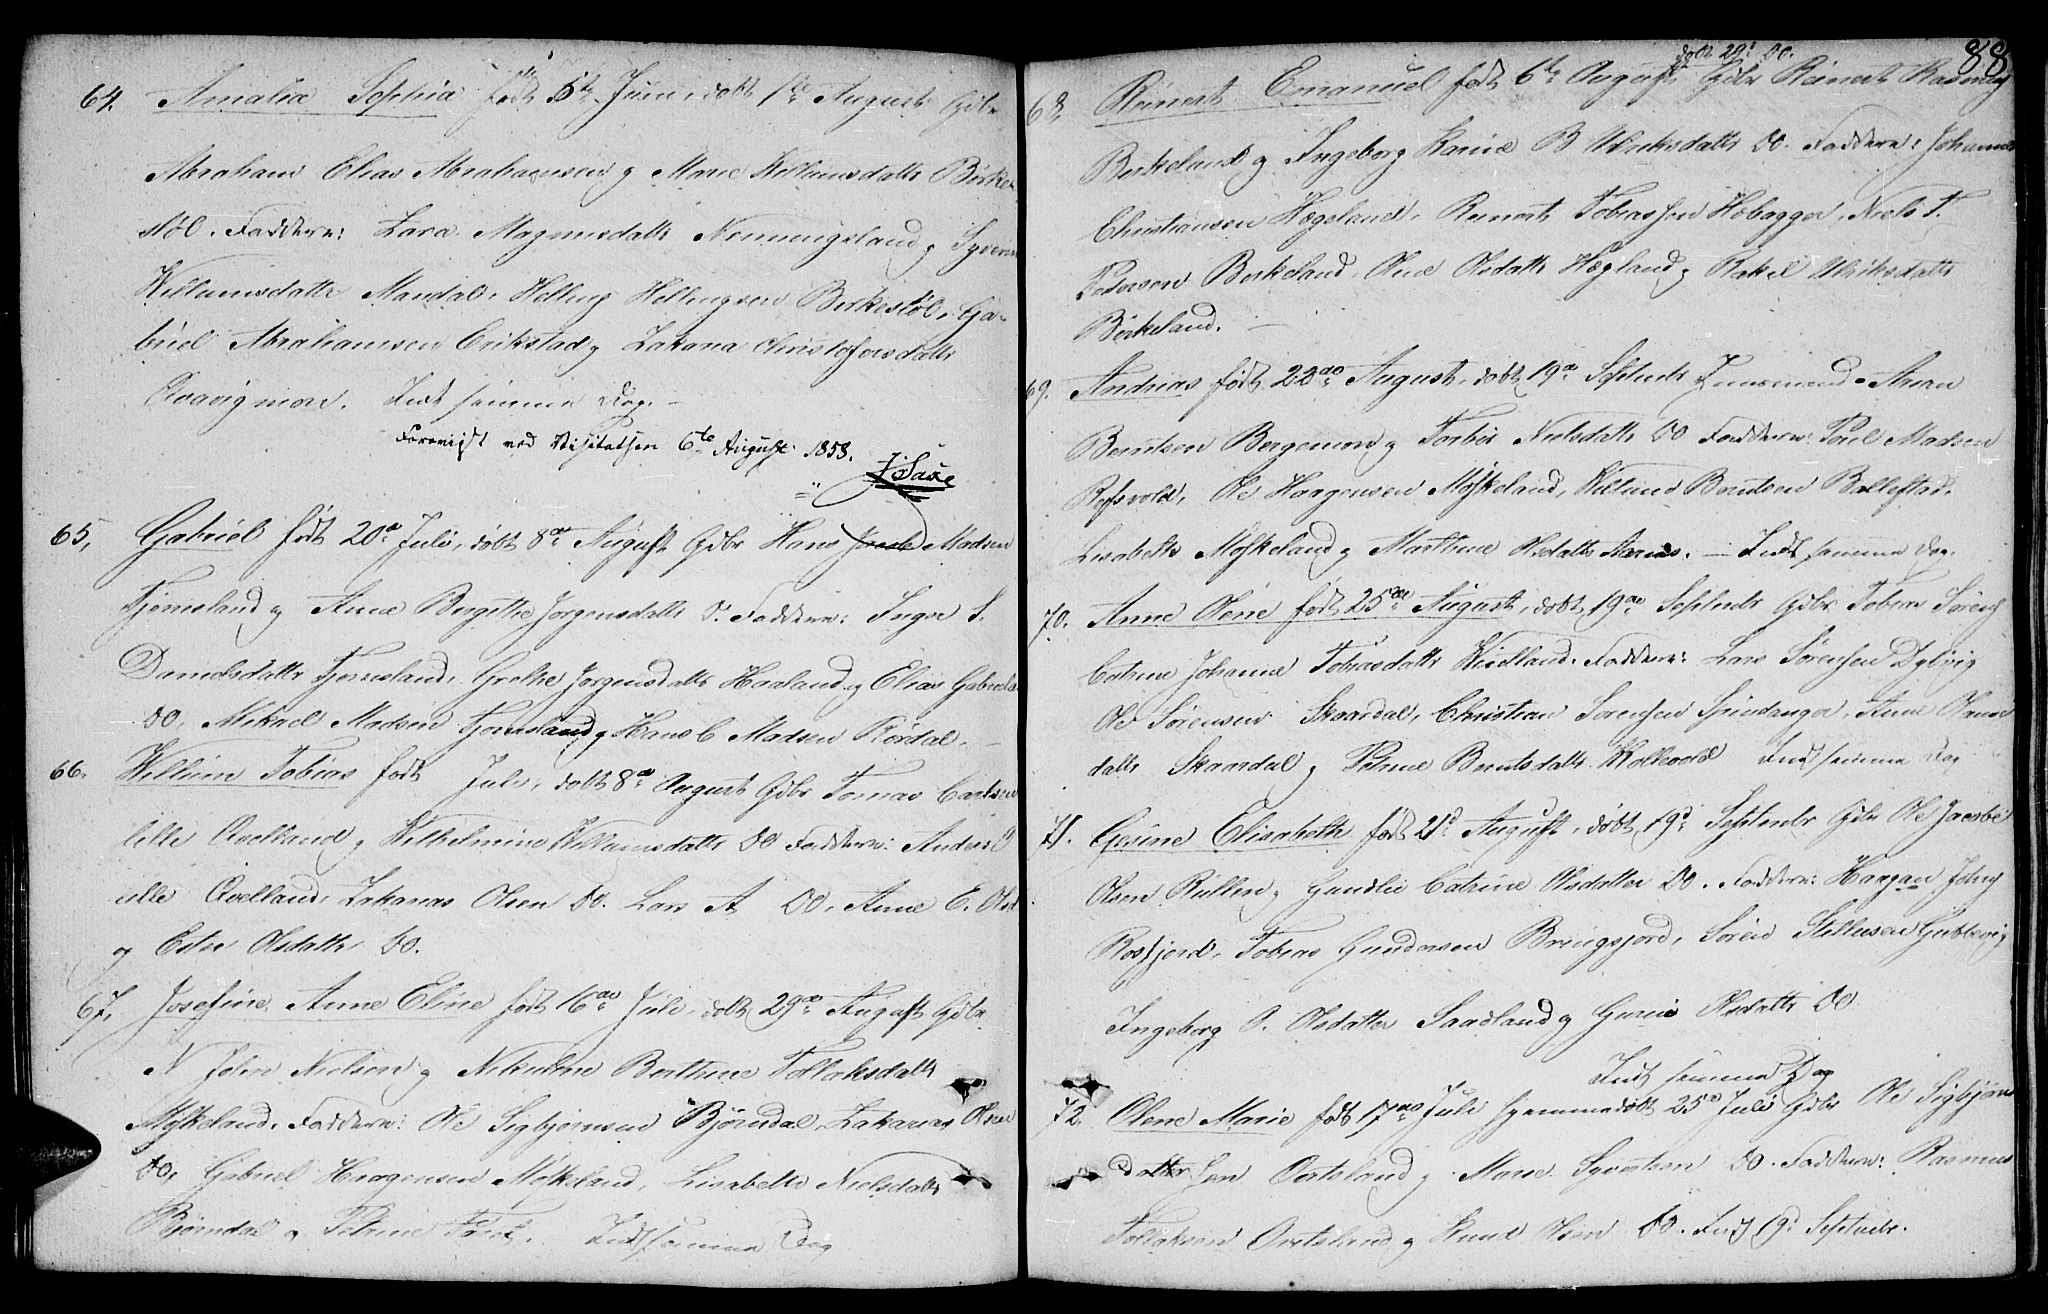 64. Amalia Sophia født 5te Juni, døbt 1te August Gdbr
Abraham Elias Abrahamsen og Marie Willumsdattr Birke-
støl. Faddere: Lara Magnusdattr Nonningsland og Syverin
Willumsdattr Mandal, Helling Hellingsen Birkestøl, Ga-
briel Abrahamsen Erikstad og Zakaria Christofersdattr
Qvavigmon. Indt samme Dag. —
Foreviist ved Visitatsen 6te August 1858.
65, Gabriel født 20de Juli, døbt 8de August Gdbr Hans Madsen
Fjomsland og Anne Bergithe Jørgensdattr D. Faddere: Inger S.
Danielsdattr Fjomsland, Grethe Jørgensdattr Haaland og Elias Gabriels
DO, Mikael Madsen Fjomsland og Hans C Madsen Rørdal. —
66. Willum Tobias født Juli, døbt 8de August Gdbr Tomas Carlsen
lille Qvelland og Wilhelmine Willumsdattr DO Faddere: Anders
lille Qvelland, Zakarias Olsen DO. Lars A DO, Anne E. Olsd
og Ester Olsdattr DO.
67, Josefine Anne Eline født 16de Juli, døbt 29de August Gdbr
N John Nielsen og Nikoline Berthine Tollaksdattr
Møskeland. Faddere: Ole Sigbjørnsen Bjørndal, Zakarias Olsen
DO, Gabriel Haagensen Møskeland, Lisabeth Nielsdattr
Bjørndal og Petrine Indt samme Dag
88
døbt 29de DO.
68, Reinert Emanuel født 6te August Gdbr Reinert Rasmus
Birkeland og Ingeborg Karine B Ulriksdattr DO. Faddere: Johannes
Christiansen Hægeland, Reinert Tobiassen Høbagger, Niels T.
Pedersen Birkeland, Oline Olsdattr Hægland og Rakel Ulriksdattr
Birkeland. —
69. Andreas født 22de August, døbt 19de Septembr Huusmand Aman
Berntsen Bergemon og Torbør Nielsdattr DO Faddere: Poul Madsen
Røssvold, Ole Haagensen Møskeland, Willum Berntsen Ballestad,
Lisabeth Møskeland og Marthine Olsdattr Aarnes. — Indt samme Dag.
70. Anne Olene født 25de August, døbt 19de Septembr Gdbr Tobias Sørens
Catrine Johanne Tobiasdattr Wiidland. Faddere: Lars Sørensen Dybvig
Ole Sørensen Skaardal, Christian Sørensen Spindanger, Anne Olaus
dattr Skaardal og Petrine Berntsdattr Kollevold Indt samme Dag
71. Gesine Elisabeth født 21de August, døbt 19de Septembr Gdbr Ole Jacob
Olsen Rullen og Gundlie Catrine Olsdatter DO. Faddere: Haagan Johns
Rosfjord, Tobias Gundersen Bringsjord, Søren Stillusen Gubbevig
Ingeborg O. Olsdatter Saadland og Gurine Olsdattr DO
Indt samme Dag
72. Olene Marie født 17de Juli hjemmedøbt 25de Juli Gdbr Ole Sigbjørn
sen Oortsland og Marie Syvertsen DO. Faddere: Rasmus
Tollaksen Oortsland og Knud Olsen DO. Indt 19de Septembr.